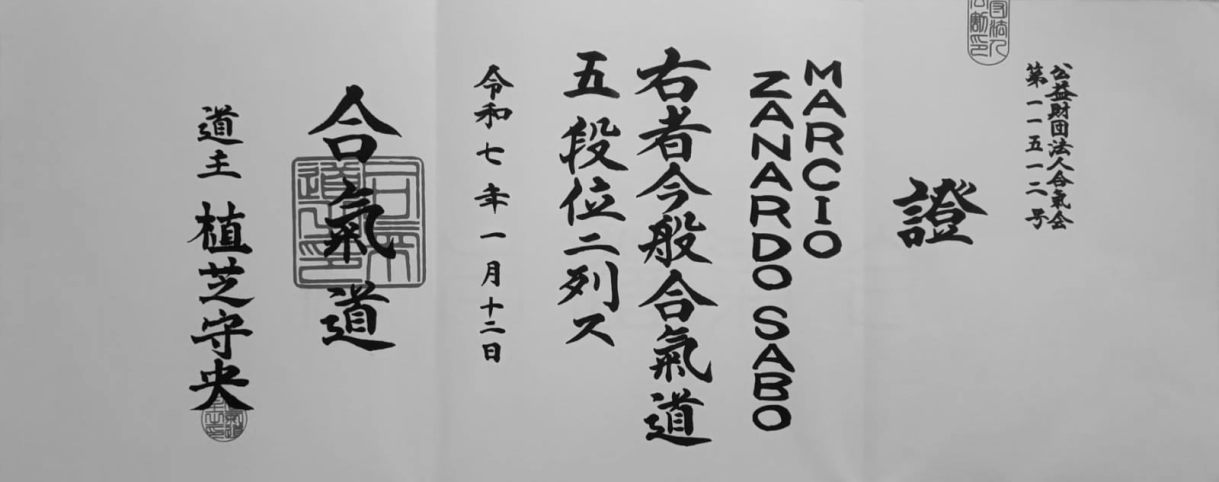 公益財団法人合氣会
第一一五一二号
證
MARCIO
ZANARDO SABO
右者今般合氣道
五段位ニ列ス
令和七年一月十二日
合氣道
道主 植芝守央